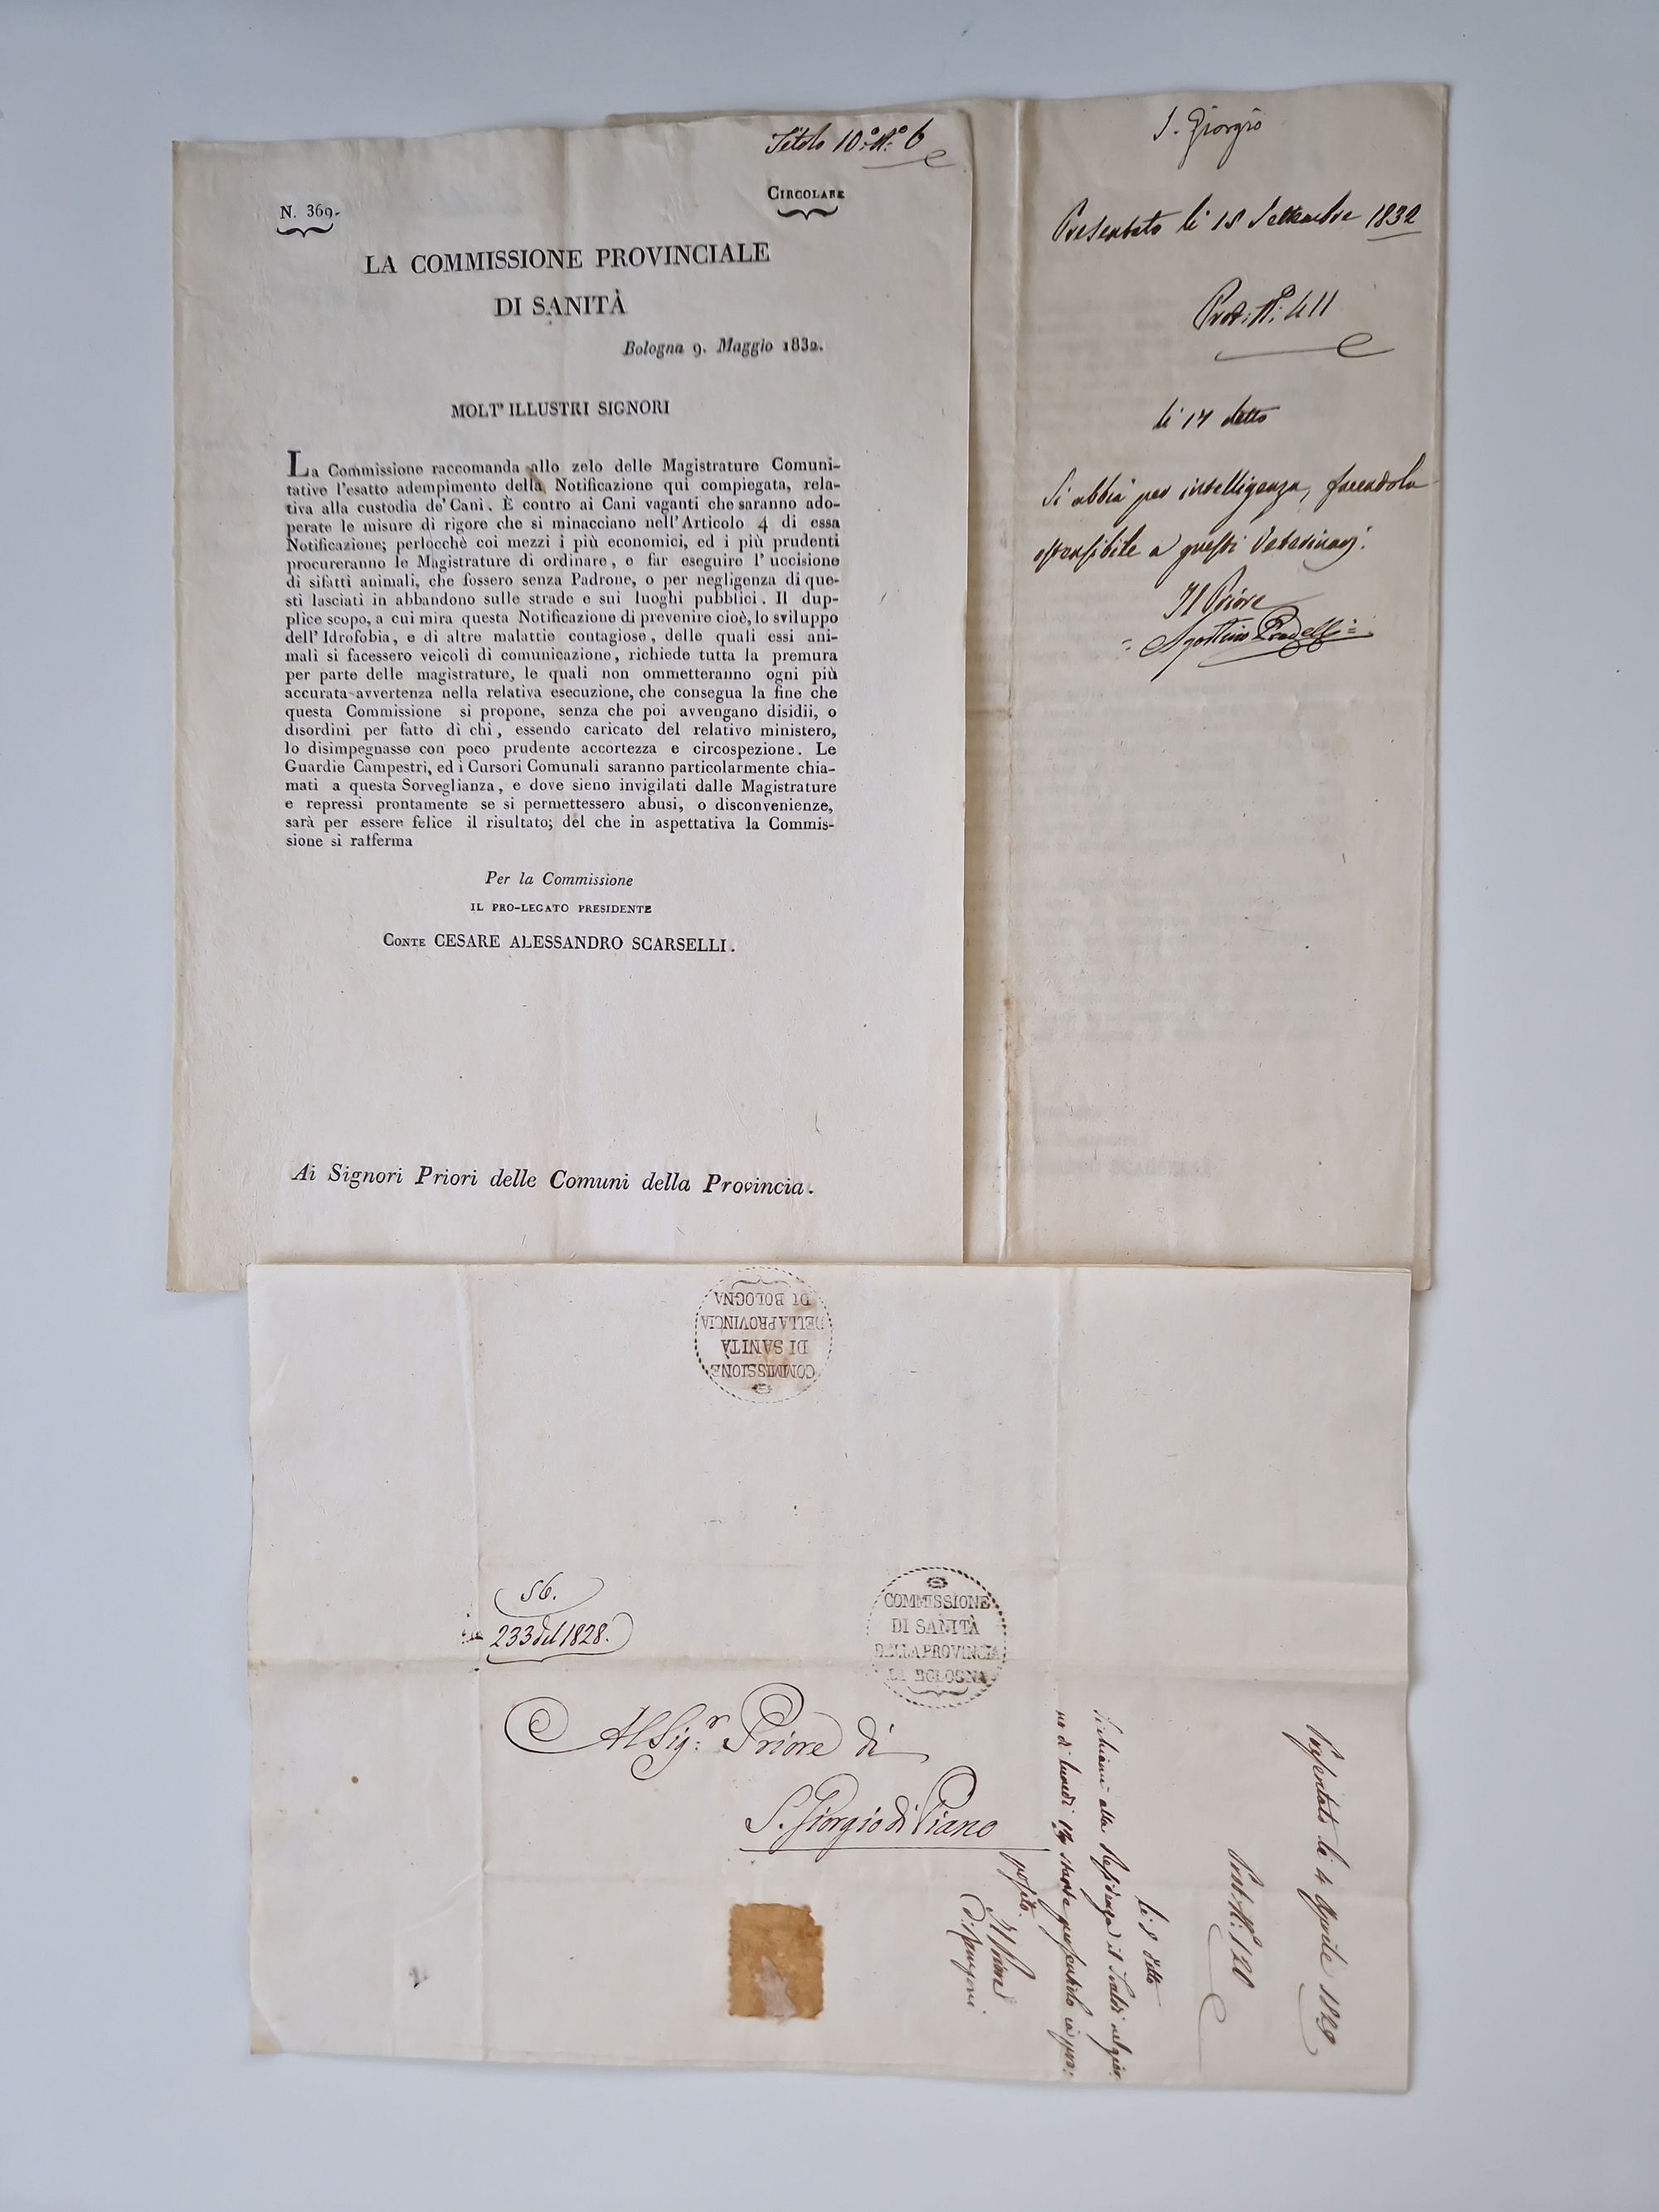 Titolo 10.º N.º 6
CIRCOLARE
N. 369.
LA COMMISSIONE PROVINCIALE
DI SANITÀ
Bologna 9. Maggio 1832.
MOLT' ILLUSTRI SIGNORI
La Commissione raccomanda allo zelo delle Magistrature Comuni-
tative l'esatto adempimento della Notificazione qui compiegata, rela-
tiva alla custodia de' Cani. È contro ai Cani vaganti che saranno ado-
perate le misure di rigore che si minacciano nell'Articolo 4 di essa
Notificazione; perlocchè coi mezzi i più economici, ed i più prudenti
procureranno le Magistrature di ordinare, e far eseguire l' uccisione
di sifatti animali, che fossero senza Padrone, o per negligenza di que-
sti lasciati in abbandono sulle strade e sui luoghi pubblici. Il dup-
plice scopo, a cui mira questa Notificazione di prevenire cioè, lo sviluppo
dell' Idrofobia, e di altre malattie contagiose, delle quali essi ani-
mali si facessero veicoli di comunicazione, richiede tutta la premura
per parte delle magistrature, le quali non ommetteranno ogni più
accurata avvertenza nella relativa esecuzione, che consegua la fine che
questa Commissione si propone, senza che poi avvengano disidii, o
disordini per fatto di chi, essendo caricato del relativo ministero,
lo disimpegnasse con poco prudente accortezza e circospezione. Le
Guardie Campestri, ed i Cursori Comunali saranno particolarmente chia-
mati a questa Sorveglianza, e dove sieno invigilati dalle Magistrature
e repressi prontamente se si permettessero abusi, o disconvenienze,
sarà per essere felice il risultato; del che in aspettativa la Commis-
sione si rafferma
Per la Commissione
IL PRO-LEGATO PRESIDENTE
CONTE CESARE ALESSANDRO SCARSELLI.
Ai Signori Priori delle Comuni della Provincia.
S. Giorgio
Presentato li 15 Settembre 1832
Prot. N.º 411
li 17 detto
Si abbia per intelligenza, facendola
ostensibile a questi Veterinarj.
Il Priore
Agostino
COMMISSIONE
DI SANITÀ
DELLA PROVINCIA
DI BOLOGNA
56.
233 del 1828.
COMMISSIONE
DI SANITÀ
DELLA PROVINCIA
DI BOLOGNA
Al Sig.r Priore di
S. Giorgio di Piano
Presentato li 4 Aprile 1829
Prot. N.º 120
li 8 detto
Si chiami alla Residenza il nel gior-
no di lunedì in pro-
posito.
Il Priore